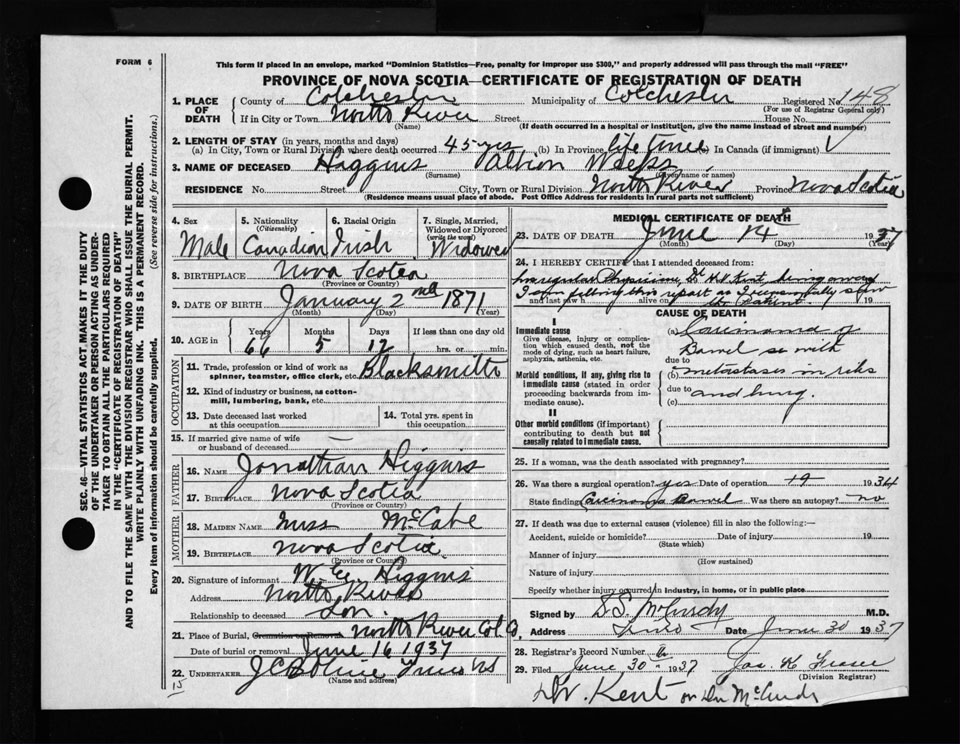 FORM 6
This form if placed in an envelope, marked "Dominion Statistics—Free, penalty for improper use $300," and properly addressed will pass through the mail "FREE"
PROVINCE OF NOVA SCOTIA—CERTIFICATE OF REGISTRATION OF DEATH
1. PLACE OF DEATH County of Colchester Municipality of Colchester Registered No. 148
(For use of Registrar General only)
If in City or Town North River Street House No.
(Name) (If death occurred in a hospital or institution, give the name instead of street and number)
2. LENGTH OF STAY (in years, months and days)
(a) In City, Town or Rural Division where death occurred 45 yrs (b) In Province life time In Canada (if immigrant)
3. NAME OF DECEASED Higgins Albion
(Surname) (Given name or names)
RESIDENCE No. Street City, Town or Rural Division North River Province Nova Scotia
(Residence means usual place of abode. Post Office Address for residents in rural parts not sufficient)
4. Sex 5. Nationality (Citizenship) 6. Racial Origin 7. Single, Married, Widowed or Divorced (write the word)
Male Canadian Irish Widowed
8. BIRTHPLACE Nova Scotia
(Province or Country)
9. DATE OF BIRTH January 2nd 1871
(Month) (Day) (Year)
10. AGE in Years Months Days If less than one day old
66 5 12 hrs. or min.
OCCUPATION
11. Trade, profession or kind of work as spinner, teamster, office clerk, etc. Blacksmith
12. Kind of industry or business, as cotton-mill, lumbering, bank, etc.
13. Date deceased last worked at this occupation
14. Total yrs. spent in this occupation
15. If married give name of wife or husband of deceased
FATHER
16. NAME Jonathan Higgins
17. BIRTHPLACE Nova Scotia
(Province or Country)
MOTHER
18. MAIDEN NAME Miss McCabe
19. BIRTHPLACE Nova Scotia
(Province or Country)
20. Signature of informant Higgins
Address North River
Relationship to deceased Son.
21. Place of Burial, Cremation or Removal North River Col Co,
Date of burial or removal June 16 1937
22. UNDERTAKER Truro NS
(Name and address)
15
MEDICAL CERTIFICATE OF DEATH
23. DATE OF DEATH June 14th 1937
(Month) (Day) (Year)
24. I HEREBY CERTIFY that I attended deceased from
regular Physician, Dr Kent, being away
I am filling this report as I
and last saw alive on 19
CAUSE OF DEATH
I
Immediate cause
Give disease, injury or complication which caused death, not the mode of dying, such as heart failure, asphyxia, asthenia, etc.
(a) Carcinoma of
Bowel with
due to
Morbid conditions, if any, giving rise to immediate cause (stated in order proceeding backwards from immediate cause).
(b) metastases in ribs
due to and lung.
(c)
II
Other morbid conditions (if important) contributing to death but not causally related to immediate cause.
25. If a woman, was the death associated with pregnancy?
26. Was there a surgical operation? yes Date of operation 1934
State finding Carcinoma Bowel Was there an autopsy? no
27. If death was due to external causes (violence) fill in also the following:—
Accident, suicide or homicide? Date of injury 19
(State which)
Manner of injury
(How sustained)
Nature of injury
Specify whether injury occurred in Industry, in home, or in public place
Signed by McCurdy M.D.
Address Truro Date June 30 1937
28. Registrar's Record Number
29. Filed June 30 1937 Jas. K Fraser
(Division Registrar)
Kent or Dr McCurdy
SEC. 46—VITAL STATISTICS ACT MAKES IT THE DUTY
OF THE UNDERTAKER OR PERSON ACTING AS UNDERTAKER
TO OBTAIN ALL THE PARTICULARS REQUIRED
IN THE "CERTIFICATE OF REGISTRATION OF DEATH"
AND TO FILE THE SAME WITH THE DIVISION REGISTRAR WHO SHALL ISSUE THE BURIAL PERMIT.
WRITE PLAINLY WITH UNFADING INK. THIS IS A PERMANENT RECORD.
Every item of information should be carefully supplied. (See reverse side for instructions.)